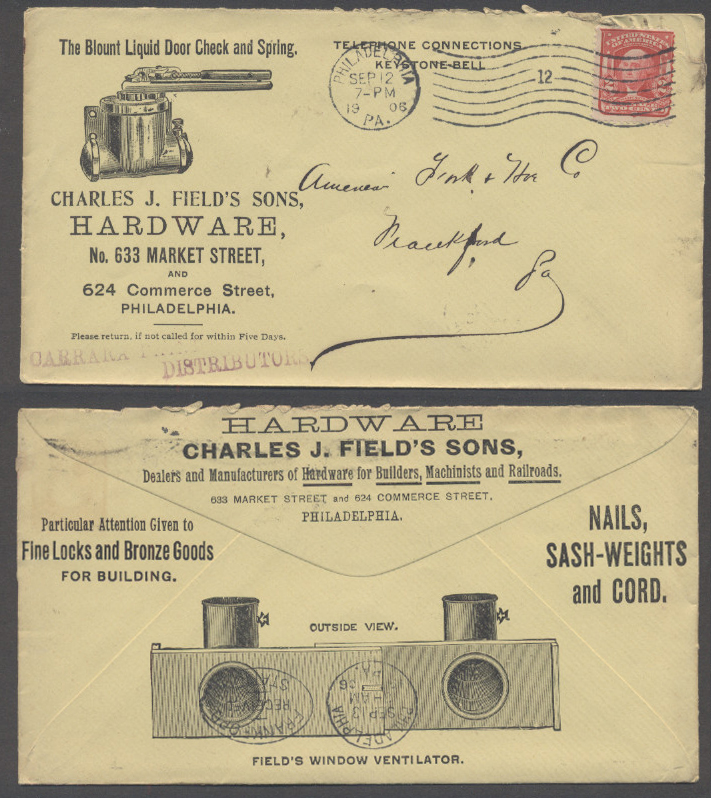 The Blount Liquid Door Check and Spring.
TELEPHONE CONNECTIONS
KEYSTONE BELL
PHILADELPHIA
SEP 12
7-PM
1906
PA.
12
CHARLES J. FIELD'S SONS,
HARDWARE,
No. 633 MARKET STREET,
AND
624 Commerce Street,
PHILADELPHIA.
Please return, if not called for within Five Days.
CARRARA
DISTRIBUTORS
American Fork & Hoe Co
Frankford
Pa
HARDWARE
CHARLES J. FIELD'S SONS,
Dealers and Manufacturers of Hardware for Builders, Machinists and Railroads.
633 MARKET STREET and 624 COMMERCE STREET,
PHILADELPHIA.
Particular Attention Given to
Fine Locks and Bronze Goods
FOR BUILDING.
NAILS,
SASH-WEIGHTS
and CORD.
OUTSIDE VIEW.
FRANKFORD
RECEIVED
PHILADELPHIA
SEP 13
PA.
FIELD'S WINDOW VENTILATOR.